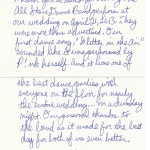 All State Dance Band perform at
our wedding on April 21, 2013 - they
were more than advertised. Our
first dance song, "Glitter, in the Air"
sounded like it was performed by
P!nk herself. And it was one of
the best dance parties with
everyone on the floor for nearly
the entire wedding... on a Sunday
night. Our personal thanks to
the band as it made for the best
day for both of us ever.